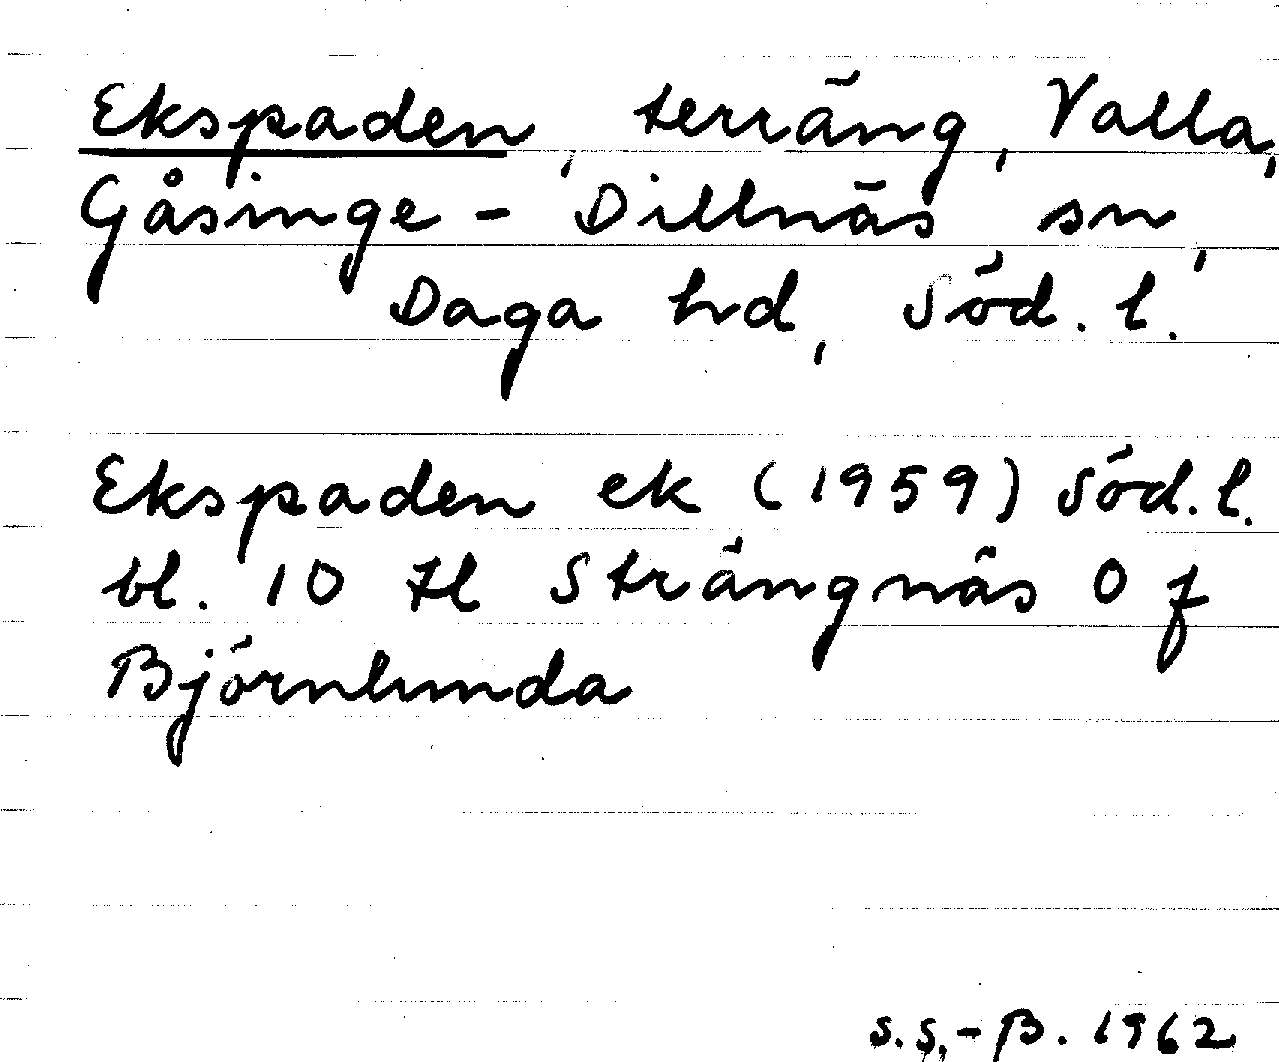 Ekspaden, terräng, Valla,
Gåsinge - Dillnäs sn,
Daga hd, Söd. l.
Ekspaden ek (1959) Söd. l.
bl. 10 tl Strängnäs O f
Björnlunda
S.S.-B. 1962